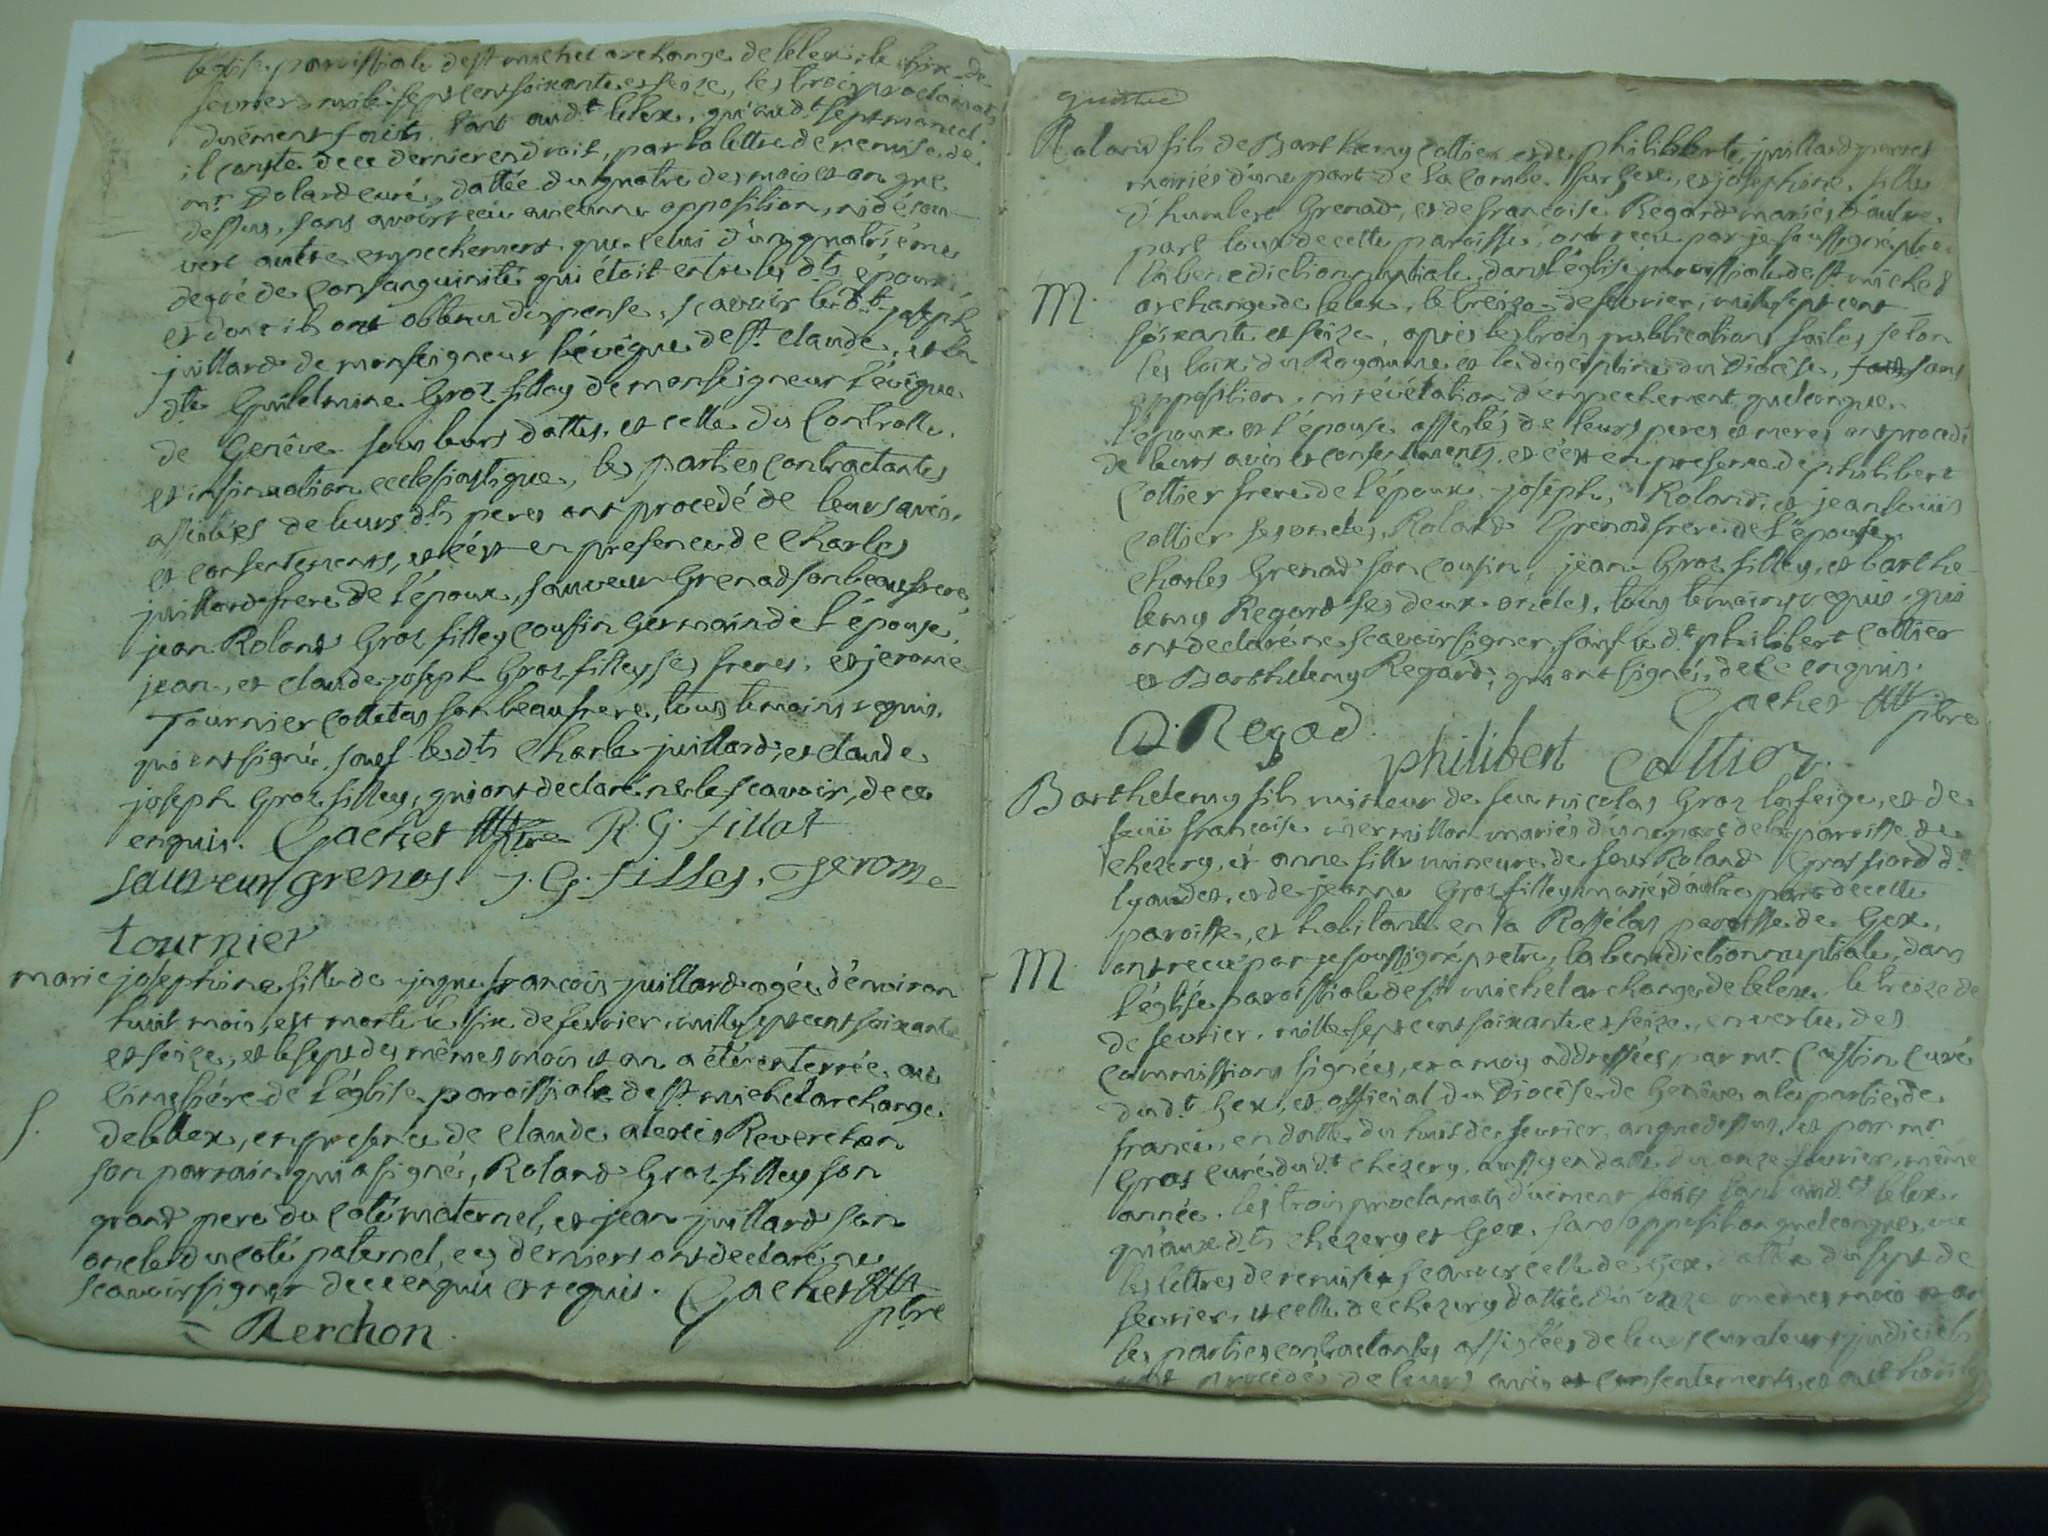 l'église paroissiale de st michel archange de lelex, le six de
fevrier mile sept cent soixante et seize, les trois proclamats
duëment faits tant aud.t lelex, qu'aud.t septmoncel
il conste de ce dernier endroit, par la lettre de remise de
m.r Dolard curé, dattée du quatre des mois et an que
dessus, sans avoir recu aucunne opposition, ni decou-
vert autre empechement que celui d'un quatriéme
degré de consanguinité qui étoit entre les d.ts époux,
et dont ils ont obbtenu dispense, scavoir le d.t joseph
juillard de monseigneur l'évêque de st. claude, et la
d.te Guilelmine Groz filley de monseigneur l'évêque
de Genêve sous leurs dattes, et celle du Controlle
et insinuation ecclesiastique, les parties contractantes
assistées de leurs d.ts peres ont procedé de leurs avis,
et consentements, et c'ést en presence de Charles
juillard frere de l'époux, sauveur Grenad son beaufrere,
jean Roland Groz filley cousin Germain de l'épouse,
jean, et claude joseph Groz filley ses freres, et jerome
Tournier Colletas son beaufrere, tous temoins requis,
qui ont signé, sauf les d.ts Charle juillard, et claude
joseph Groz filley, qui ont declaré ne le scavoir, de ce
enquis. Gachet ptre R. G. fillat
sauveur grenos. j. G. filles, Jerome
tournier
marie josephine fille de jaque françois juillard agée d'environ
huit mois, est morte le six de fevrier, mille sept cent soixante
et seize, et le sept des mêmes mois et an a été enterrée au
Cimetiére de l'église paroissiale de st. michel archange
S.
de lelex, en presence de claude alexis Reverchon
son parrain qui a signé, Roland Groz filley son
grand pere du coté maternel, et jean juillard son
oncle du coté paternel, ces derniers ont declaré ne
scavoir signer de ce enquis et requis. Gachet
ptre
Rerchon
quatre
Roland fils de Barthkemy Collier et de philiberte juillard
mariés d'une part de la Combe sur Gex, et josephine fille
d'humbert Grenad, et de francoise Regard mariés d'autre
part tous de cette paroisse, ont recu par je soussigné ptre
la benediction nuptiale, dans l'église paroissiale de st. michel
M.
archange de lelex, le treize de fevrier, mille sept cent
soixante et seize, aprés les trois publications faites selon
les loix du Royaume et la discipline du Diocèse, sans
opposition, ni révélation d'empechement quelconque,
l'époux et l'épouse assistés de leurs peres et meres ont procedé
de leurs avis et consentements, et c'ést en presence de philibert
Collier frere de l'époux, joseph, Roland, et jean louis
Collier ses oncles, Roland Grenad frere de l'épouse,
Charles Grenad son cousin, jean Groz filley, et barthe-
lemy Regard ses deux oncles, tous temoins requis, qui
ont declaré ne scavoir signer, sauf le d.t philibert Collier
et Barthelemy Regard, qui ont signé, de ce enquis.
Gachet
ptre
Regad
philibert Collior
Barthelemy fils mineur de feu nicolas Groz lafeige, et de
feuë françoise mermillon mariés d'une part de la paroisse de
Chezery, et anne fille mineure de feu Roland
et de jeanne Groz filley mariés d'autre part de cette
paroisse, et habitante en la paroisse de Gex,
M
ont recu par je soussigné pretre, la benediction nuptiale, dans
l'église paroissiale de st michel archange de lelex, le treize de
de fevrier, mille sept cent soixante et seize, en vertu des
Commissions signées, et a moy addressées par m.r Castin Curé
dud.t Gex, et official du Diocêse de Genêve a la partie de
france, en datte du huit de fevrier, an que dessus, et par m.r
Gros curé dud.t chézery, aussy en datte du onze fevrier, même
année, les trois proclamats duëment faits tant aud.t lelex
qu'aux d.ts chezery et Gex, sans opposition quelconque, vu
les lettres de remise, scavoir celle de Gex, dattée du sept de
fevrier, et celle de chezery dattée du onze mêmes mois et an
les parties contractantes assistées de leurs curateurs judiciels
ont procedés de leurs avis et consentements, et